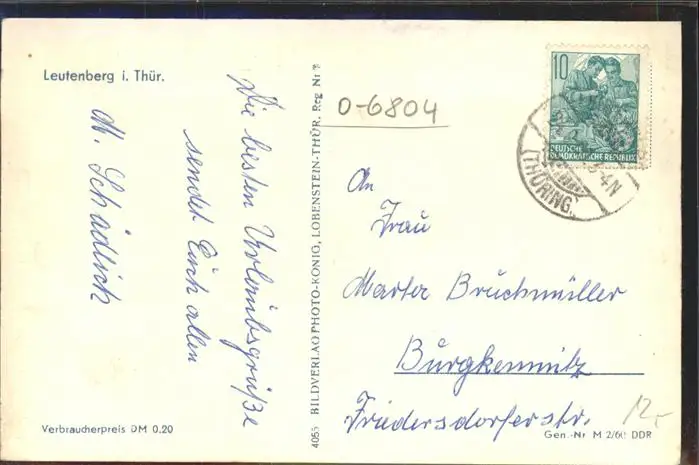 Leutenberg i. Thür.
Die besten Urlaubsgrüße
sendet Euch allen
M. Schädlich
Verbraucherpreis DM 0.20
4055 BILDVERLAG PHOTO-KÖNIG, LOBENSTEIN-THÜR. Reg Nr
O-6804
10
DEUTSCHE
DEMOKRATISCHE REPUBLIK
(THÜRING.
An
Frau
Marta Bruchmüller
Burgkemnitz
Friedersdorferstr.
12,-
Gen.-Nr M 2/60 DDR